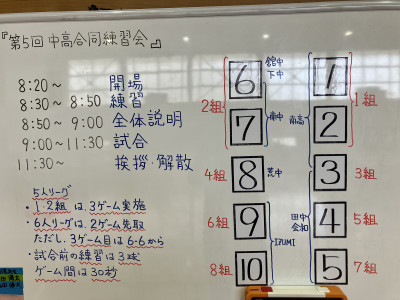 『第5回中高合同練習会』
8:20~ 開場
8:30~8:50 練習
8:50~9:00 全体説明
9:00~11:30 試合
11:30~ 挨拶・解散
5人リーグ
・1・2組は、3ゲーム実施
・6人リーグは、2ゲーム先取
ただし、3ゲーム目は6-6から
・試合前の練習は3球
ゲーム間は30秒
6
1
2組
1組
7
2
南高
4組
8
荒中
3
3組
6組
9
田中
4
5組
IZUMI
8組
10
5
7組